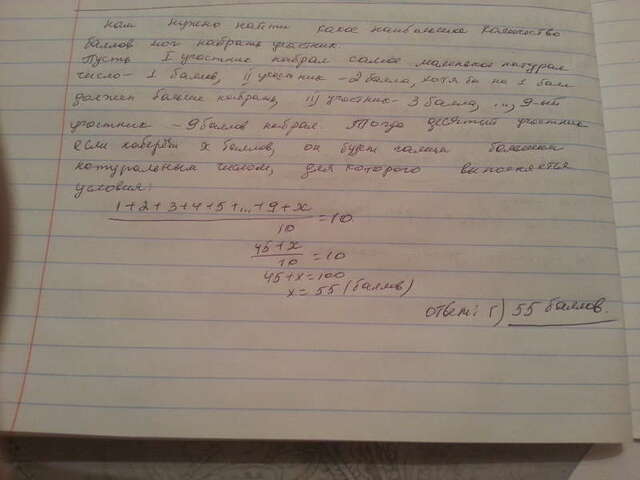 нам нужно найти какое наибольшее количество
баллов мог набрать участник.
Пусть I участник набрал самое маленькое натурал
число - 1 баллов, II участник - 2 балла, хотя бы на 1 балл
должен больше набрать, III участник - 3 балла, ..., 9-ый
участник - 9 баллов набрал. Тогда десятый участник
если наберёт x баллов, он будет самым большим
натуральным числом, для которого выполняется
условия:
1+2+3+4+5+...+9+x / 10 = 10.
45+x / 10 = 10
45+x=100
x = 55 (баллов)
Ответ: Г) 55 баллов.